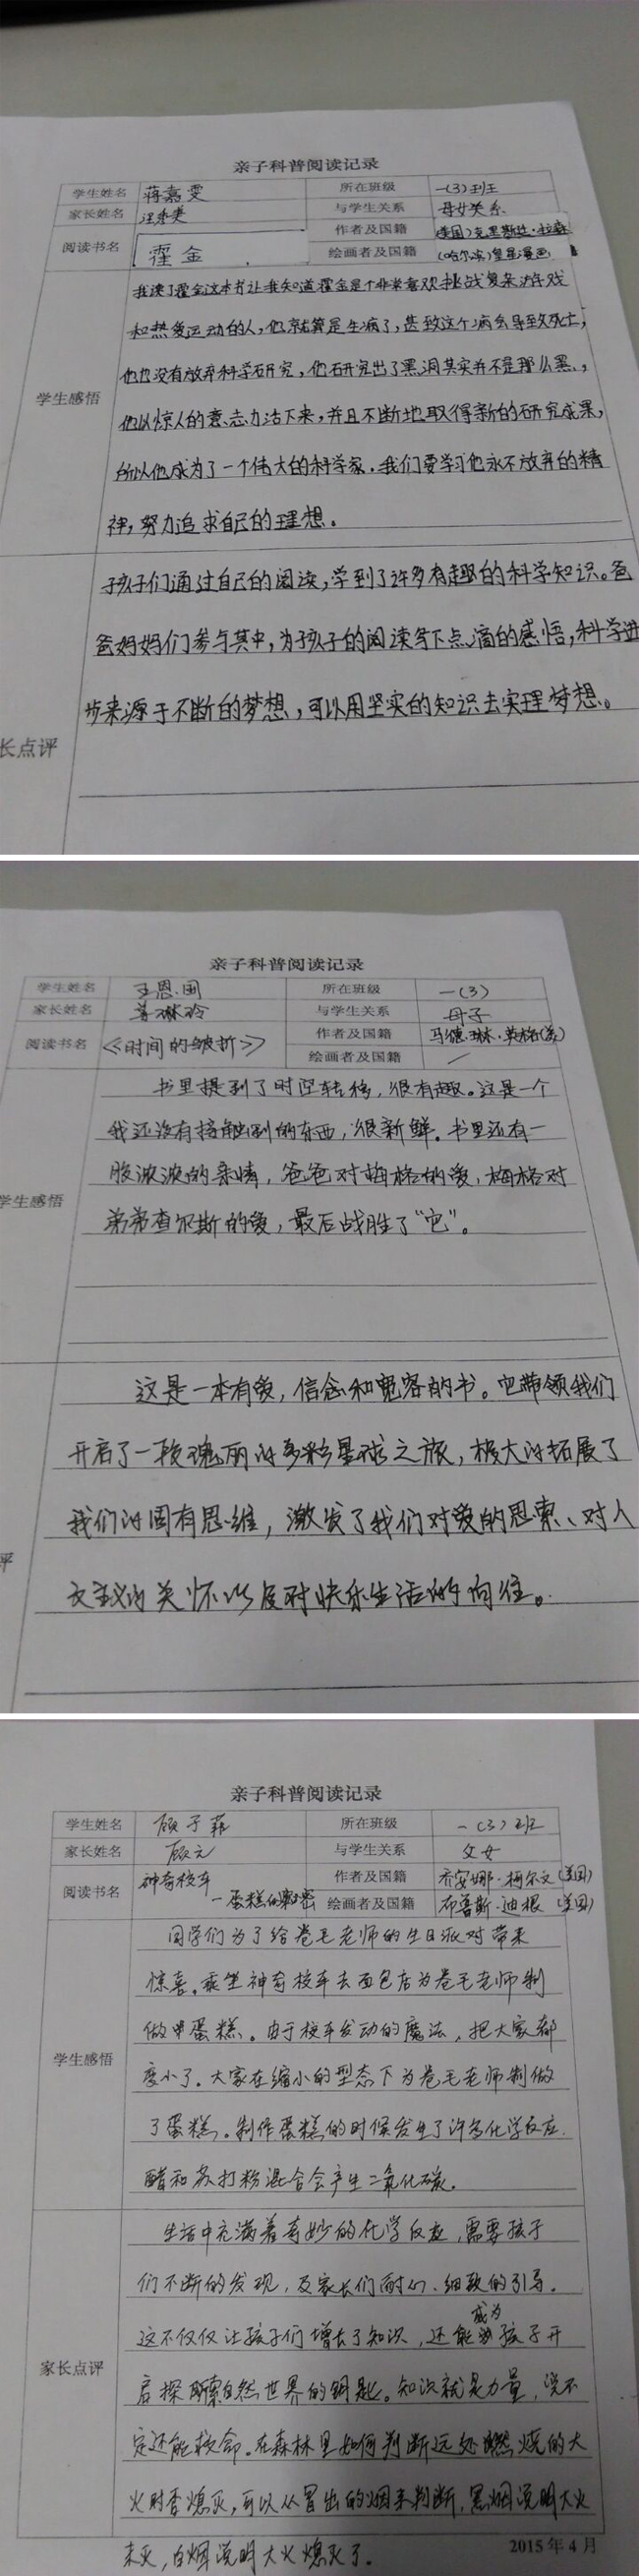 亲子科普阅读记录
学生姓名 蒋嘉雯 所在班级 一(3)班
家长姓名 与学生关系 母女关系
阅读书名 霍金 作者及国籍 (美国)克里斯廷·拉森
绘画者及国籍 (哈尔滨)皇星漫画
学生感悟
我读了霍金这本书让我知道霍金是个非常喜欢挑战复杂游戏
和热爱运动的人,他就算是生病了,甚致这个病会导致死亡,
他也没有放弃科学研究,他研究出了黑洞其实并不是那么黑.,
他以惊人的意志力活下来,并且不断地取得新的研究成果,
所以他成为了一个伟大的科学家.我们要学习他永不放弃的精
神,努力追求自己的理想。
长点评
孩子们通过自己的阅读,学到了许多有趣的科学知识。爸
爸妈妈们参与其中,为孩子的阅读写下点滴的感悟,科学进
步来源于不断的梦想,可以用坚实的知识去实理梦想。
亲子科普阅读记录
学生姓名 王恩国 所在班级 一(3)
家长姓名 与学生关系 母子
阅读书名 《时间的皱折》 作者及国籍 马德琳·英格(美)
绘画者及国籍 /
学生感悟
书里提到了时空转移,很有趣。这是一个
我还没有接触到的东西,很新鲜。书里还有一
股浓浓的亲情,爸爸对梅格的爱,梅格对
弟弟查尔斯的爱,最后战胜了“它”。
评
这是一本有爱,信念和宽容的书。它带领我们
开启了一段瑰丽的多彩星球之旅,极大的拓展了
我们的固有思维,激发了我们对爱的思索、对人
文主义的关怀以及对快乐生活的向往。
亲子科普阅读记录
学生姓名 顾子菲 所在班级 一(3)班
家长姓名 顾元 与学生关系 父女
阅读书名 神奇校车 作者及国籍 乔安娜·柯尔文(美国)
—蛋糕的秘密 绘画者及国籍 布鲁斯·迪根(美国)
学生感悟
同学们为了给卷毛老师的生日派对带来
惊喜。乘坐神奇校车去面包店为卷毛老师制
做蛋糕。由于校车发动的魔法,把大家都
变小了.大家在缩小的型态下为卷毛老师制做
了蛋糕。制作蛋糕的时候发生了许多化学反应.
醋和苏打粉混合会产生二氧化碳.
家长点评
生活中充满着奇妙的化学反应,需要孩子
们不断的发现,及家长们耐心、细致的引导。
这不仅仅让孩子们增长了知识,还能成为孩子开
启探索自然世界的钥匙。知识就是力量,说不
定还能救命。在森林里如何判断远处燃烧的大
火时否熄灭,可以从冒出的烟来判断.黑烟说明大火
未灭,白烟说明大火熄灭了.
2015年4月